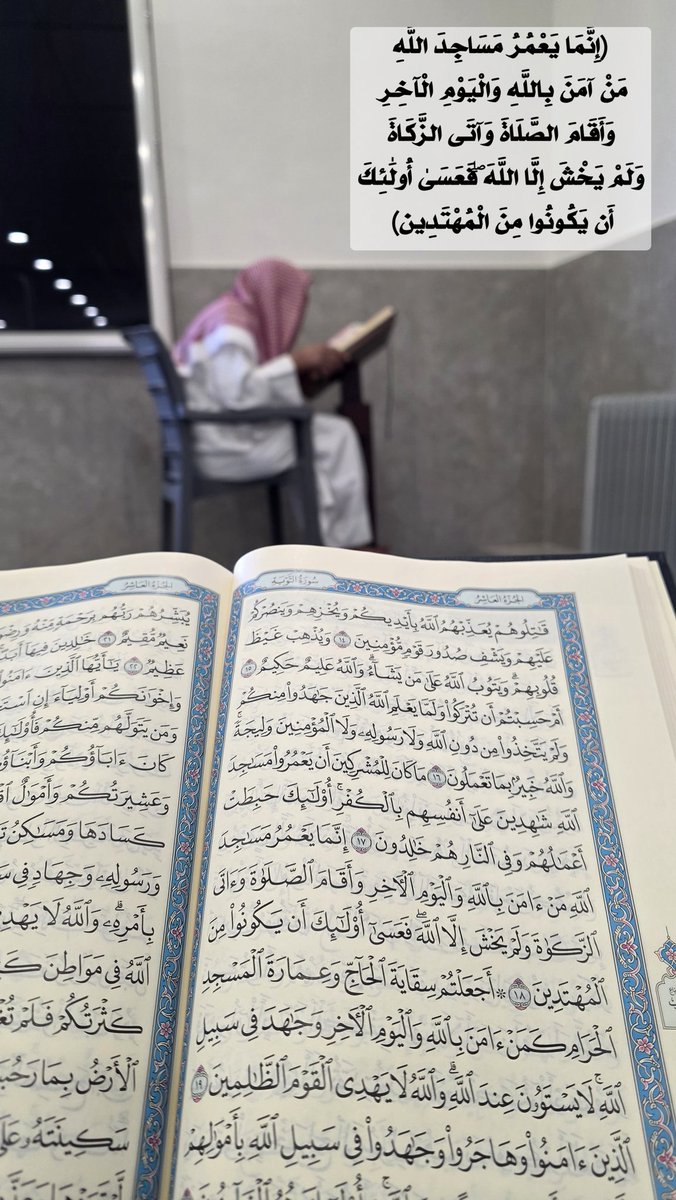 (إِنَّمَا يَعْمُرُ مَسَاجِدَ اللَّهِ
مَنْ آمَنَ بِاللَّهِ وَالْيَوْمِ الْآخِرِ
وَأَقَامَ الصَّلَاةَ وَآتَى الزَّكَاةَ
وَلَمْ يَخْشَ إِلَّا اللَّهَ ۖ فَعَسَىٰ أُولَٰئِكَ
أَن يَكُونُوا مِنَ الْمُهْتَدِين)
الجُزءُ العَاشِرُ
سُورَةُ التَّوْبَةِ
قَٰتِلُوهُمْ يُعَذِّبْهُمُ ٱللَّهُ بِأَيْدِيكُمْ وَيُخْزِهِمْ وَيَنصُرْكُمْ
عَلَيْهِمْ وَيَشْفِ صُدُورَ قَوْمٍ مُّؤْمِنِينَ ١٤ وَيُذْهِبْ غَيْظَ
قُلُوبِهِمْ ۗ وَيَتُوبُ ٱللَّهُ عَلَىٰ مَن يَشَآءُ ۗ وَٱللَّهُ عَلِيمٌ حَكِيمٌ ١٥
أَمْ حَسِبْتُمْ أَن تُتْرَكُوا۟ وَلَمَّا يَعْلَمِ ٱللَّهُ ٱلَّذِينَ جَٰهَدُوا۟ مِنكُمْ
وَلَمْ يَتَّخِذُوا۟ مِن دُونِ ٱللَّهِ وَلَا رَسُولِهِۦ وَلَا ٱلْمُؤْمِنِينَ وَلِيجَةً ۚ
وَٱللَّهُ خَبِيرٌۢ بِمَا تَعْمَلُونَ ١٦ مَا كَانَ لِلْمُشْرِكِينَ أَن يَعْمُرُوا۟ مَسَٰجِدَ
ٱللَّهِ شَٰهِدِينَ عَلَىٰٓ أَنفُسِهِم بِٱلْكُفْرِ ۚ أُو۟لَٰٓئِكَ حَبِطَتْ
أَعْمَٰلُهُمْ وَفِى ٱلنَّارِ هُمْ خَٰلِدُونَ ١٧ إِنَّمَا يَعْمُرُ مَسَٰجِدَ
ٱللَّهِ مَنْ ءَامَنَ بِٱللَّهِ وَٱلْيَوْمِ ٱلْءَاخِرِ وَأَقَامَ ٱلصَّلَوٰةَ وَءَاتَى
ٱلزَّكَوٰةَ وَلَمْ يَخْشَ إِلَّا ٱللَّهَ ۖ فَعَسَىٰٓ أُو۟لَٰٓئِكَ أَن يَكُونُوا۟ مِنَ
ٱلْمُهْتَدِينَ ١٨ ۞ أَجَعَلْتُمْ سِقَايَةَ ٱلْحَآجِّ وَعِمَارَةَ ٱلْمَسْجِدِ
ٱلْحَرَامِ كَمَنْ ءَامَنَ بِٱللَّهِ وَٱلْيَوْمِ ٱلْءَاخِرِ وَجَٰهَدَ فِى سَبِيلِ
ٱللَّهِ ۚ لَا يَسْتَوُۥنَ عِندَ ٱللَّهِ ۗ وَٱللَّهُ لَا يَهْدِى ٱلْقَوْمَ ٱلظَّٰلِمِينَ ١٩
ٱلَّذِينَ ءَامَنُوا۟ وَهَاجَرُوا۟ وَجَٰهَدُوا۟ فِى سَبِيلِ ٱللَّهِ بِأَمْوَٰلِهِمْ
الجُزءُ العَاشِرُ
يُبَشِّرُهُمْ رَبُّهُم بِرَحْمَةٍ مِّنْهُ
نَعِيمٌ مُّقِيمٌ ٢١ خَٰلِدِينَ فِيهَآ
عَظِيمٌ ٢٢ يَٰٓأَيُّهَا ٱلَّذِينَ
وَإِخْوَٰنَكُمْ أَوْلِيَآءَ إِنِ
وَمَن يَتَوَلَّهُم مِّنكُمْ
كَانَ ءَابَآؤُكُمْ
وَعَشِيرَتُكُمْ وَأَمْوَٰلٌ
كَسَادَهَا وَمَسَٰكِنُ
وَرَسُولِهِۦ وَجِهَادٍ فِى
بِأَمْرِهِۦ ۗ وَٱللَّهُ لَا
ٱللَّهُ فِى مَوَاطِنَ
كَثْرَتُكُمْ فَلَمْ
ٱلْأَرْضُ بِمَا
سَكِينَتَهُۥ